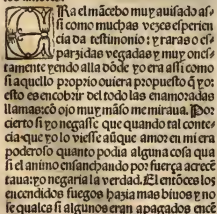 Ra el mãcebo muy auisado as
si como muchas vezes esperien
cia da testimonio: y raras o es
parzidas vegadas y muy onesta
tamente yendo alla dõde yo era assi como
si aquello propio ouiera propuesto q̃ yo:
esto es encobrir del todo las enamoradas
llamas cõ ojo muy mãso me miraua. Por
cierto si yo negasse que quando tal conte
cia que yo lo viesse aũque amor en mi era
poderoso quanto podia alguna cosa qua
si el animo ensanchando por fuerça acrecẽ
taua: yo negaria la verdad. El entõces los
encendidos fuegos hazia mas biuos y no
se quales si algunos eran apagados enc